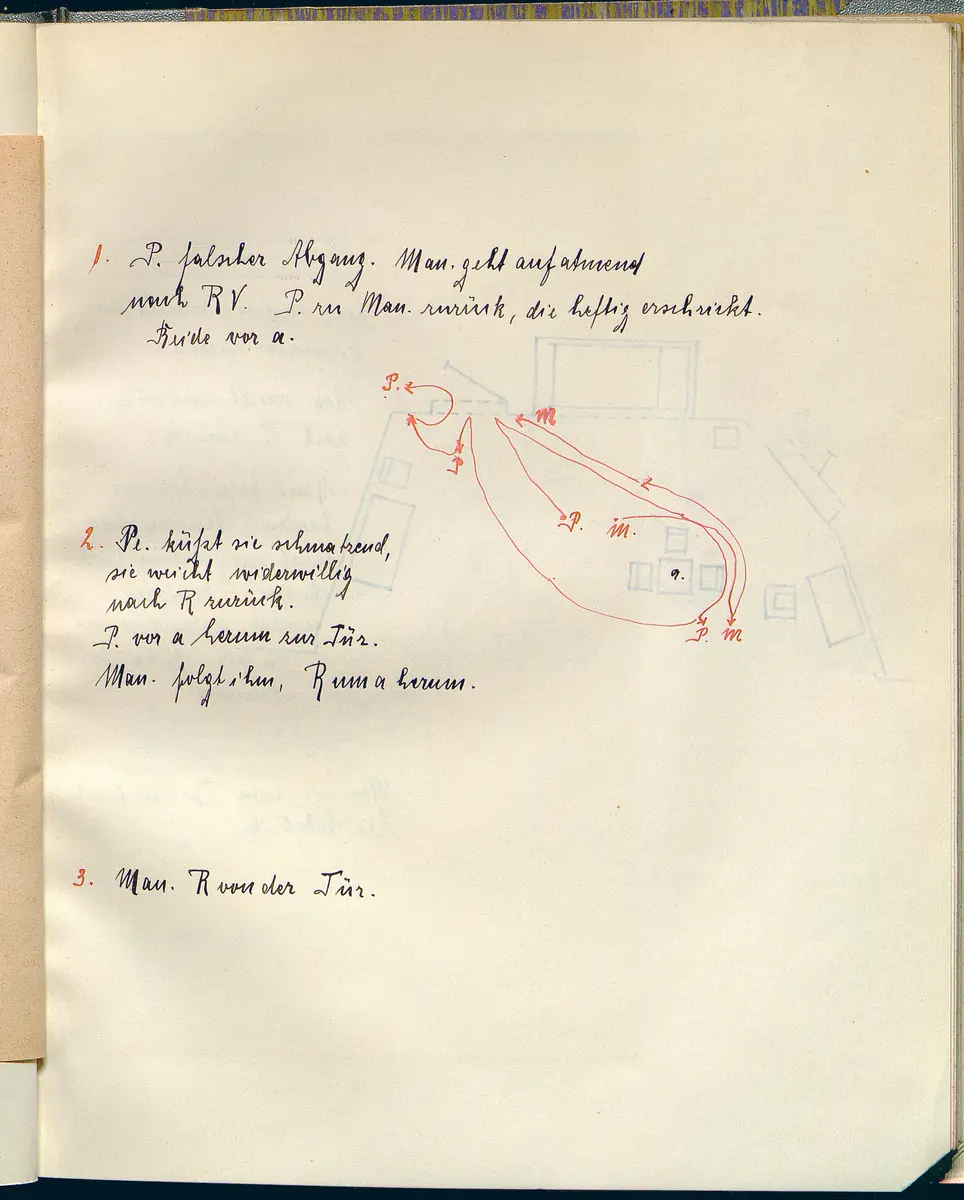 1. P. falscher Abgang. Man. geht aufatmend
nach R V. P. zu Man. zurück, die heftig erschrickt.
Beide vor a.
P.
M
P
P.
M.
a.
P. M
2. Pe. küßt sie schmatzend,
sie weicht widerwillig
nach R zurück.
P. vor a herum zur Tür.
Man. folgt ihm, R um a herum.
3. Man. R von der Tür.